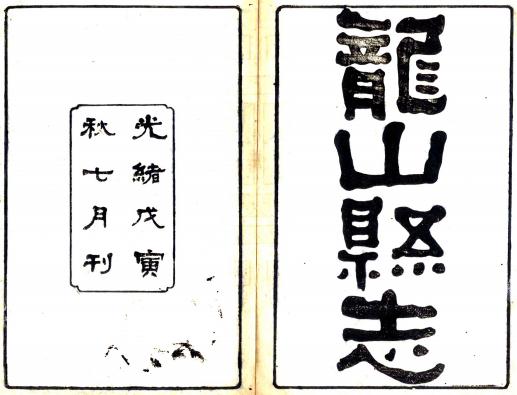 龍山縣志
光緒戊寅
秋七月刊